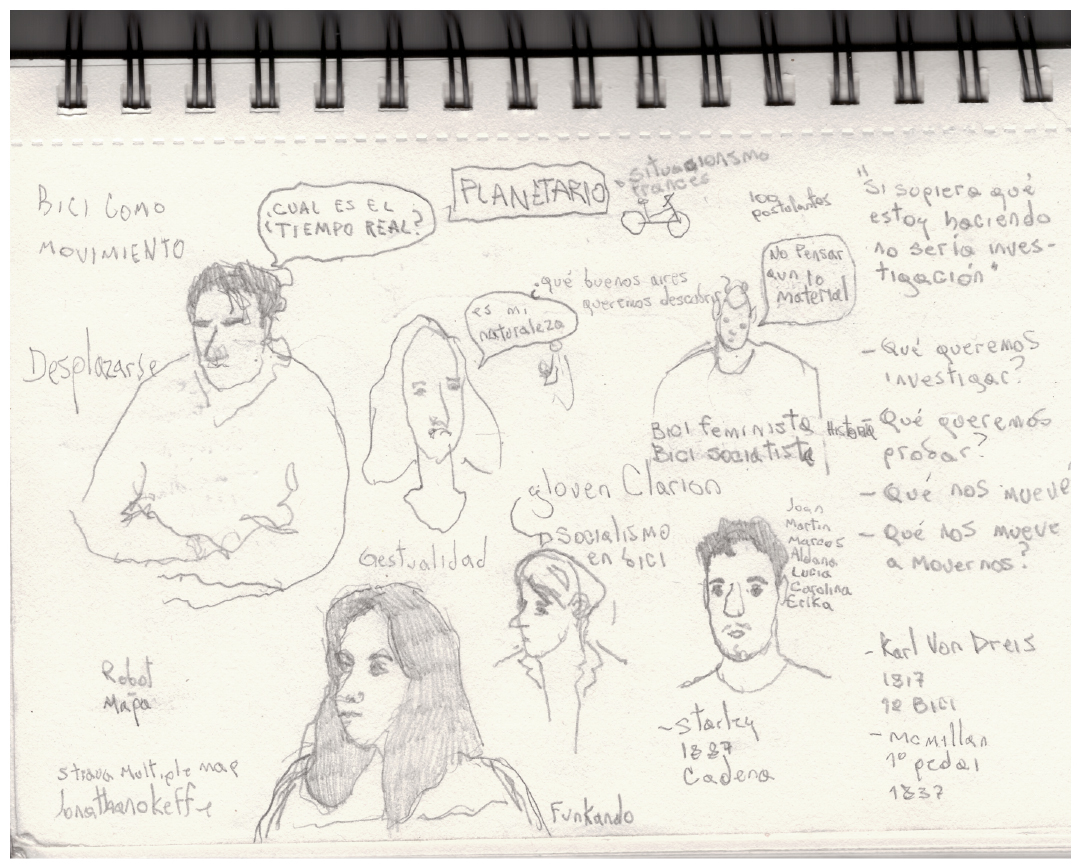 BICI COMO
MOVIMIENTO
¿CUAL ES EL
TIEMPO REAL?
PLANETARIO
situacionismo
frances
100
postulantes
"Si supiera qué
estoy haciendo
no sería inves-
tigación"
No Pensar
aun lo
material
¿qué buenos aires
queremos descubrir?
es mi
naturaleza
Desplazarse
- Qué queremos
investigar?
BICI feminista
BICI socialista
Historia
- Qué queremos
probar?
- Qué nos mueve
- Qué nos mueve
a movernos?
Joven Clarion
Socialismo
en bici
Gestualidad
Joan
Martin
Marcos
Aldana
Lucia
Carolina
Erika
Robot
Mapa
- Karl Von Dreis
1817
1º BICI
- mcmillan
1º pedal
1837
- Starley
1887
Cadena
strava Multiple map
Jonathanokeffe
Funkando